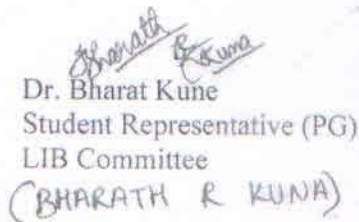 Bharath R Kuna
Dr. Bharat Kune
Student Representative (PG)
LIB Committee
(BHARATH R KUNA)